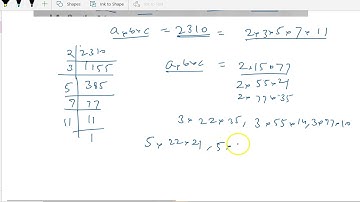 Ink to Shape
a×b×c = 2310 = 2×3×5×7×11
2 | 2310
3 | 1155
5 | 385
7 | 77
11 | 11
1
a×b×c = 2×15×77
2×55×21
2×77×35
3×22×35, 3×55×14, 3×77×10
5×22×21, 5×